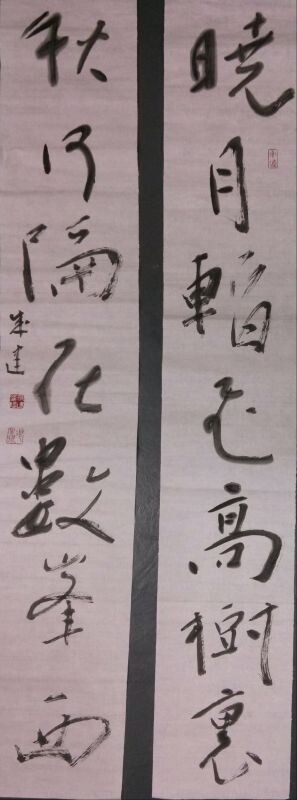 曉月暫飛高樹裏
秋河隔在數峯西